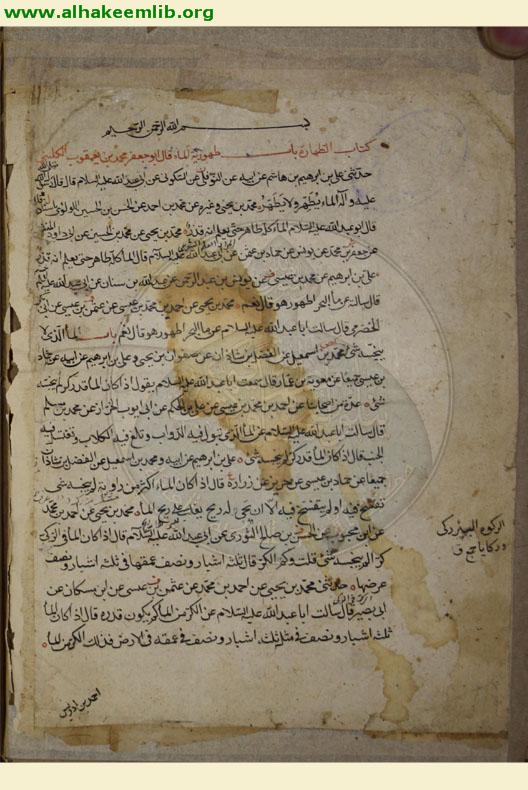 www.alhakeemlib.org
بسم الله الرحمن الرحيم
كتاب الطهارة باب طهورية الماء قال ابو جعفر محمد بن يعقوب الكليني
حدثني علي بن ابرهيم بن هاشم عن ابيه عن النوفلي عن السكوني عن ابي عبد الله عليه السلام قال قال رسول الله صلى الله
عليه وآله الماء يُطَهِّر ولا يُطَهَّر محمد بن يحيى وغيره عن محمد بن احمد عن الحسن بن الحسين اللولوي باسناده
قال ابو عبد الله عليه السلام الماء كله طاهر حتى يعلم انه قذر محمد بن يحيى عن محمد بن الحسين عن ابي داود المنشد
عن جعفر بن محمد عن يونس عن حماد بن عثمن عن ابي عبد الله عليه السلام قال الماء كله طاهر حتى يعلم انه قذر
علي بن ابرهيم عن محمد بن عيسى عن يونس بن عبد الرحمن عن عبد الله بن سنان عن ابي عبد الله عليه السلام
قال سالته عن ماء البحر اطهور هو قال نعم محمد بن يحيى عن احمد بن محمد بن عيسى عن عثمن بن عيسى عن ابي بكر
الحضرمي قال سالت ابا عبد الله عليه السلام عن ماء البحر اطهور هو قال نعم باب الماء الذي لا
ينجسه شيء محمد بن اسمعيل عن الفضل بن شاذان عن صفوان بن يحيى وعلي بن ابرهيم عن ابيه عن حماد
بن عيسى جميعا عن معوية بن عمار قال سمعت ابا عبد الله عليه السلام يقول اذا كان الماء قدر كر لم ينجسه
شيء عدة من اصحابنا عن احمد بن محمد بن عيسى عن علي بن الحكم عن ابي ايوب الخزاز عن محمد بن مسلم
قال سالت ابا عبد الله عليه السلام عن الماء الذي تبول فيه الدواب وتلغ فيه الكلاب ويغتسل فيه
الجنب قال اذا كان الماء قدر كر لم ينجسه شيء علي بن ابرهيم عن ابيه ومحمد بن اسمعيل عن الفضل بن شاذان
جميعا عن حماد بن عيسى عن حريز عن زرارة قال اذا كان الماء اكثر من راوية لم ينجسه شيء
تفسخ فيه او لم يتفسخ فيه الا ان يجيء له ريح يغلب على ريح الماء محمد بن يحيى عن احمد بن محمد
عن ابن محبوب عن الحسن بن صالح الثوري عن ابي عبد الله عليه السلام قال اذا كان الماء في الركي
كرا لم ينجسه شيء قلت وكم الكر قال ثلثة اشبار ونصف عمقها في ثلثة اشبار ونصف
عرضها حدثني محمد بن يحيى عن احمد بن محمد عن عثمن بن عيسى عن ابن مسكان عن
ابي بصير قال سالت ابا عبد الله عليه السلام عن الكر من الماء كم يكون قدره قال اذا كان الماء
ثلثة اشبار ونصف في مثله ثلثة اشبار ونصف في عمقه في الارض فذلك الكر من الماء
الركوة البئر ركى
وركايا ج ق
احمد بن ادريس